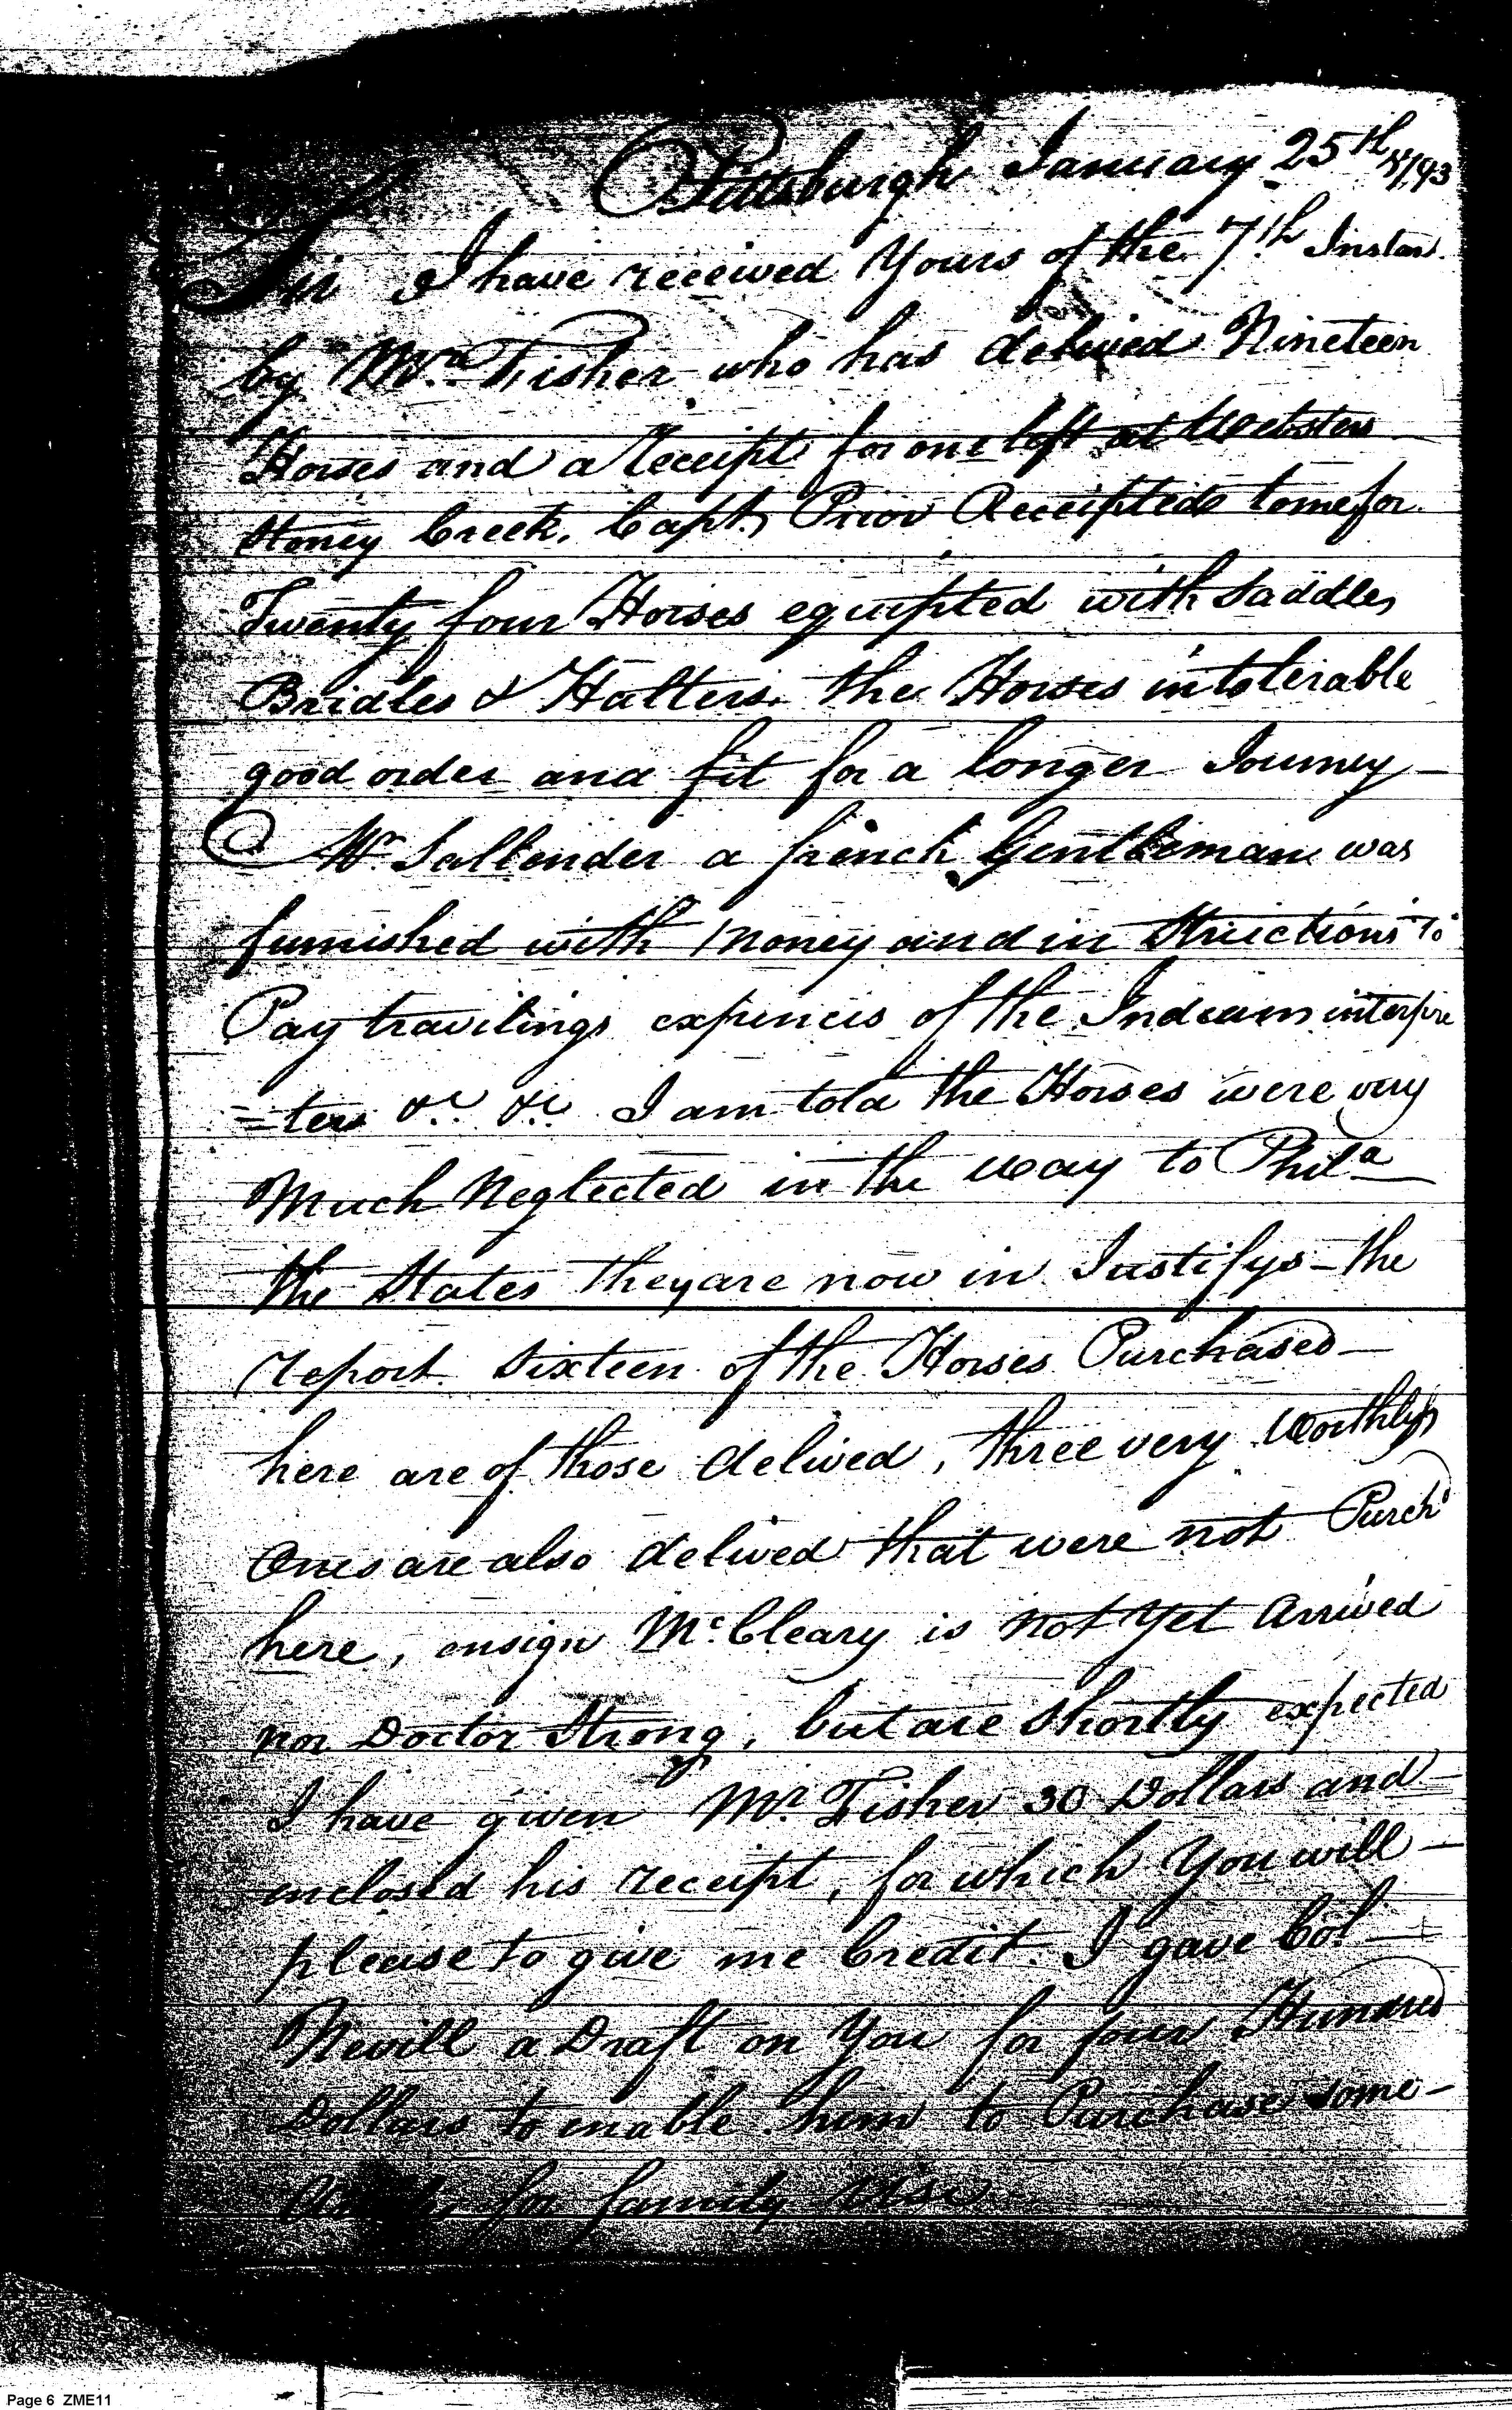 Pittsburgh January 25th 1793
Sir I have received Yours of the 7th Instan.
by Mr. Fisher who has delived Nineteen
Horses and a receipt for one left at Websters
Stoney Creek, Capt. Prior Receipted to me for
Twenty four Horses equipted with Saddles
Bridles & Halters. the Horses in tolerable
good order and fit for a longer Journey —
Mr Sallender a french Gentleman was
furnished with money and in structions to
Pay travilings expences of the Indians interpre
=ters &c. &c. I am told the Horses were very
Much Neglected in the way to Phila
the States they are now in Justifys – the
report. Sixteen of the Horses Purchased —
here are of those delived, three very Worthlys
Ones are also delived that were not Purchd
here, ensign McCleary is not yet arrived
nor Doctor Strong, but are Shortly expected
I have given Mr. Fisher 30 Dollars and
enclosed his receipt, for which You will –
please to give me Credit. I gave Col –
Nevill a Draft on You for four Hundred
Dollars to enable him to Purchase some –
for family use
Page 6 ZME11